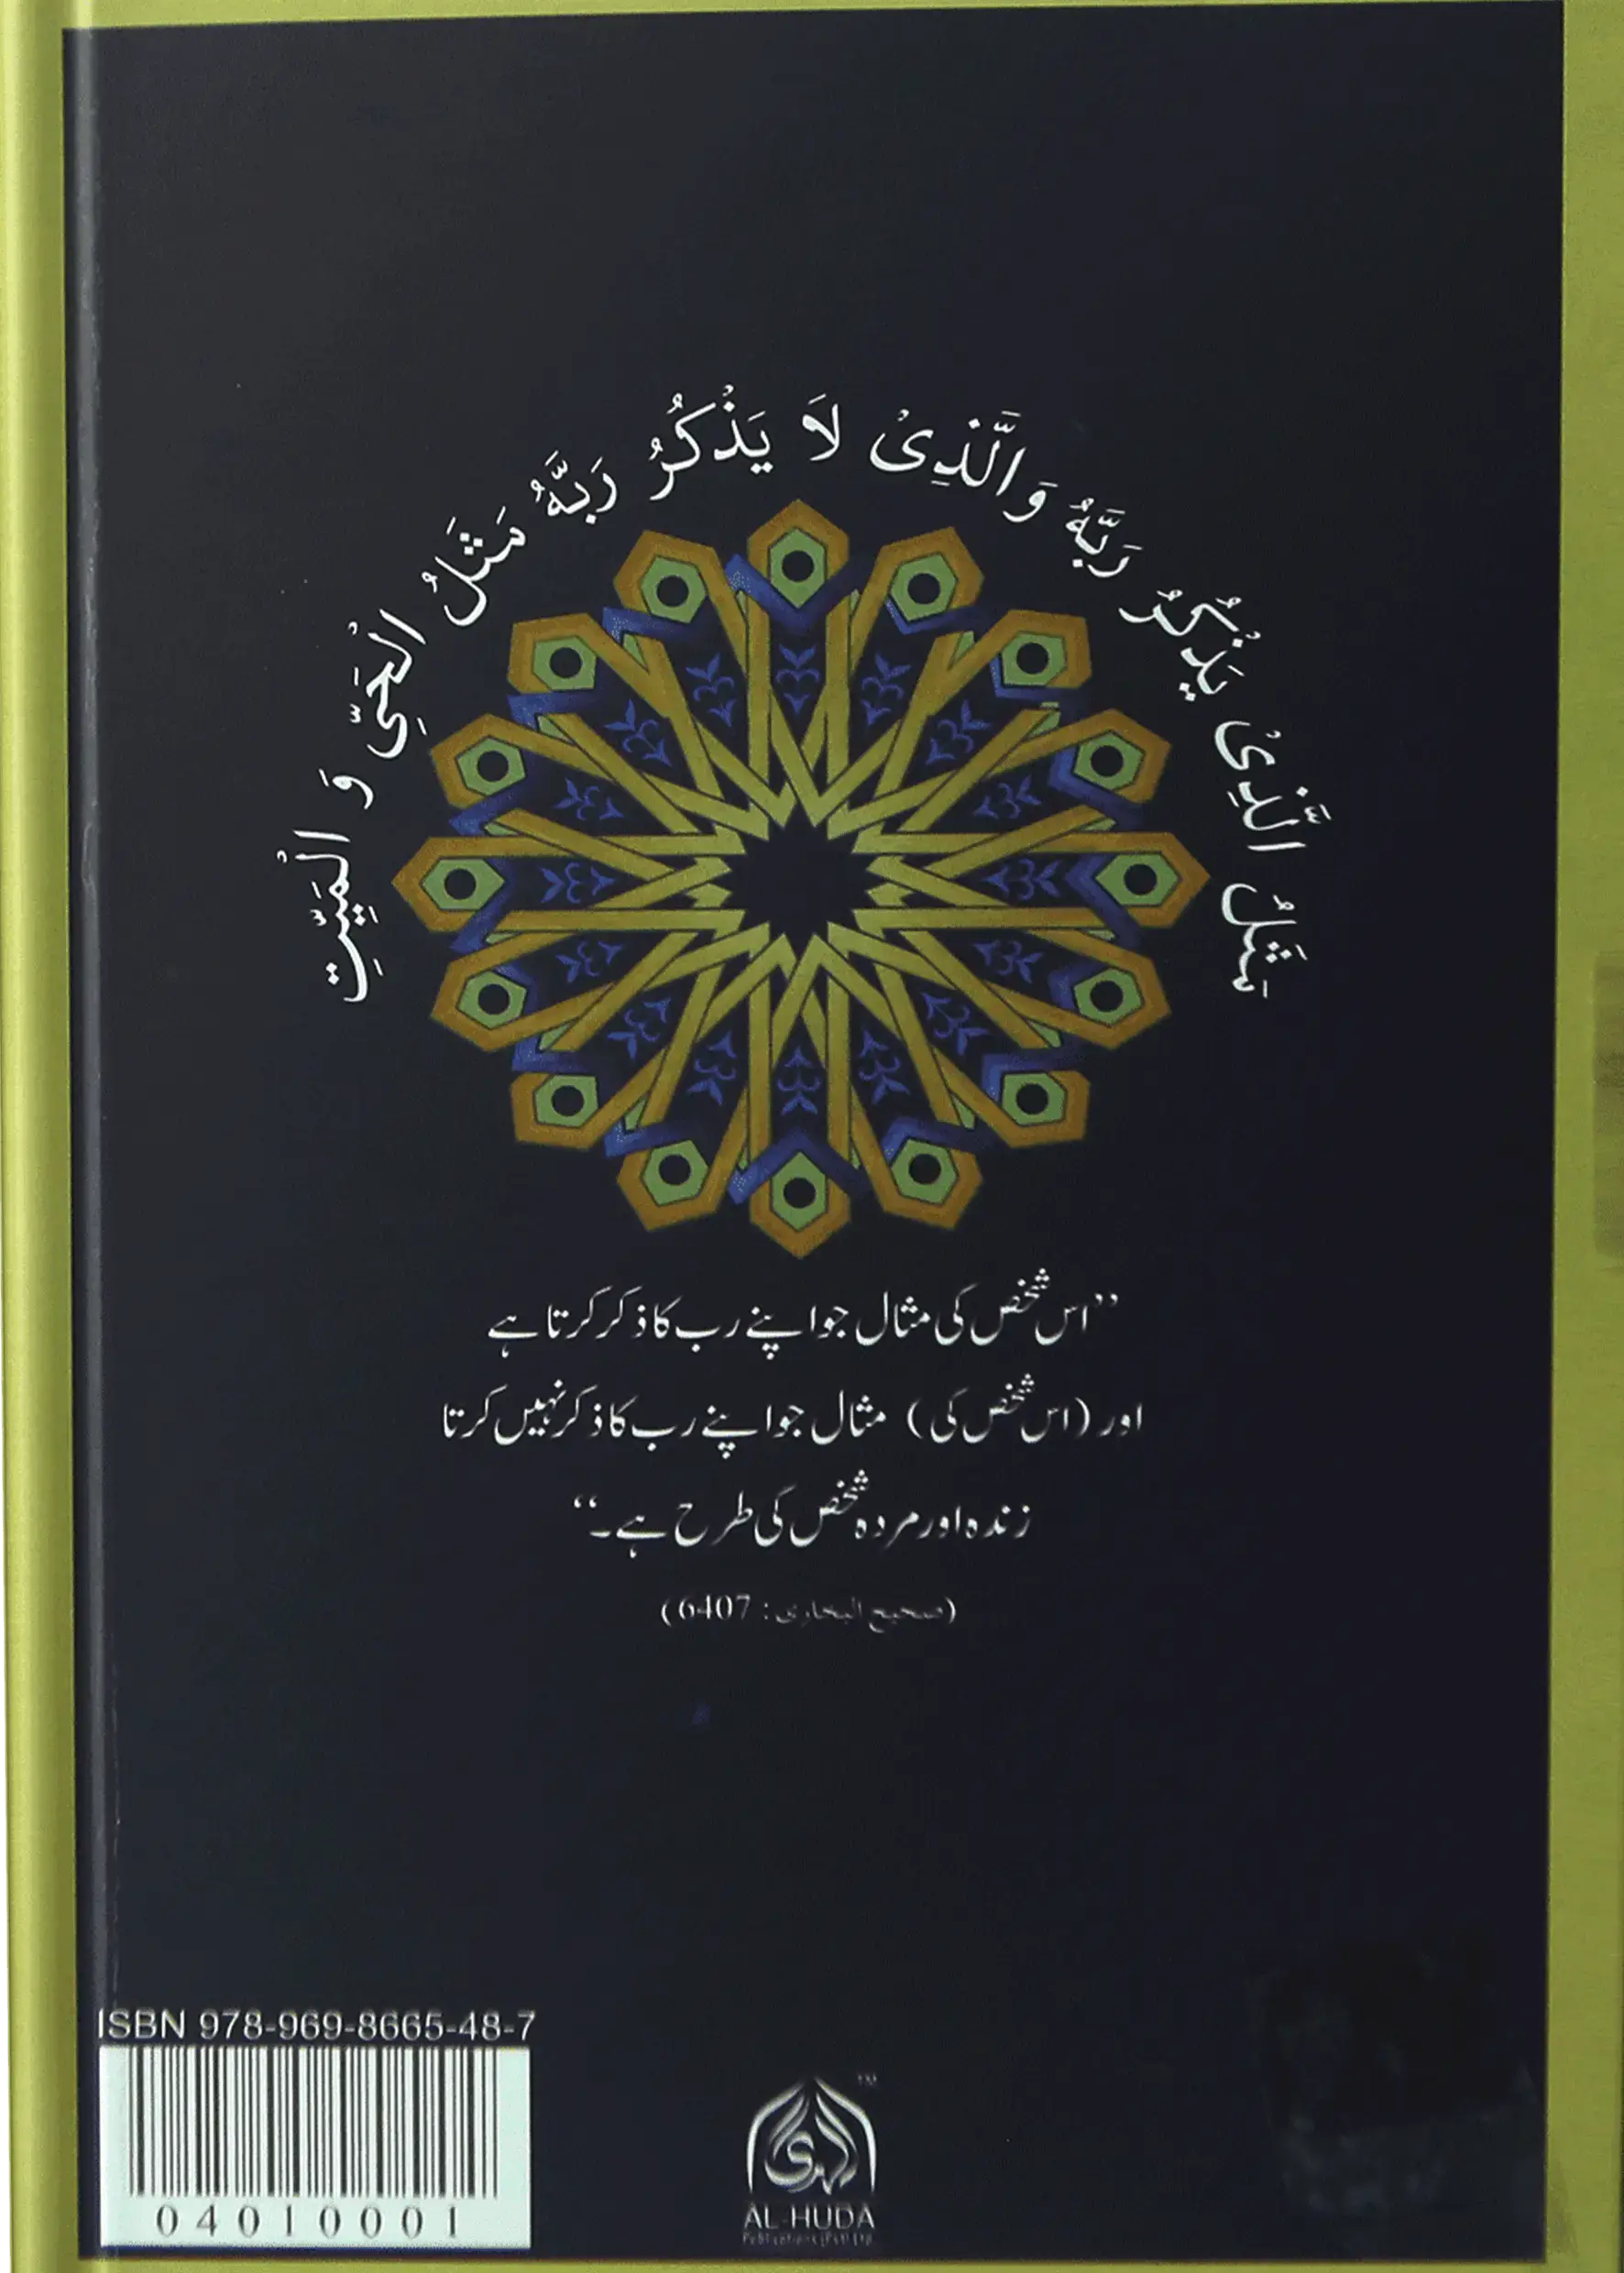 مَثَلُ الَّذِىْ يَذْكُرُ رَبَّهُ وَالَّذِىْ لَا يَذْكُرُ رَبَّهُ مَثَلُ الْحَيِّ وَ الْمَيِّتِ
”اس شخص کی مثال جو اپنے رب کا ذکر کرتا ہے
اور (اس شخص کی) مثال جو اپنے رب کا ذکر نہیں کرتا
زندہ اور مردہ شخص کی طرح ہے۔“
(صحیح البخاری: 6407)
ISBN 978-969-8665-48-7
04010001
الهدى
TM
AL-HUDA
Publications (Pvt) Ltd.